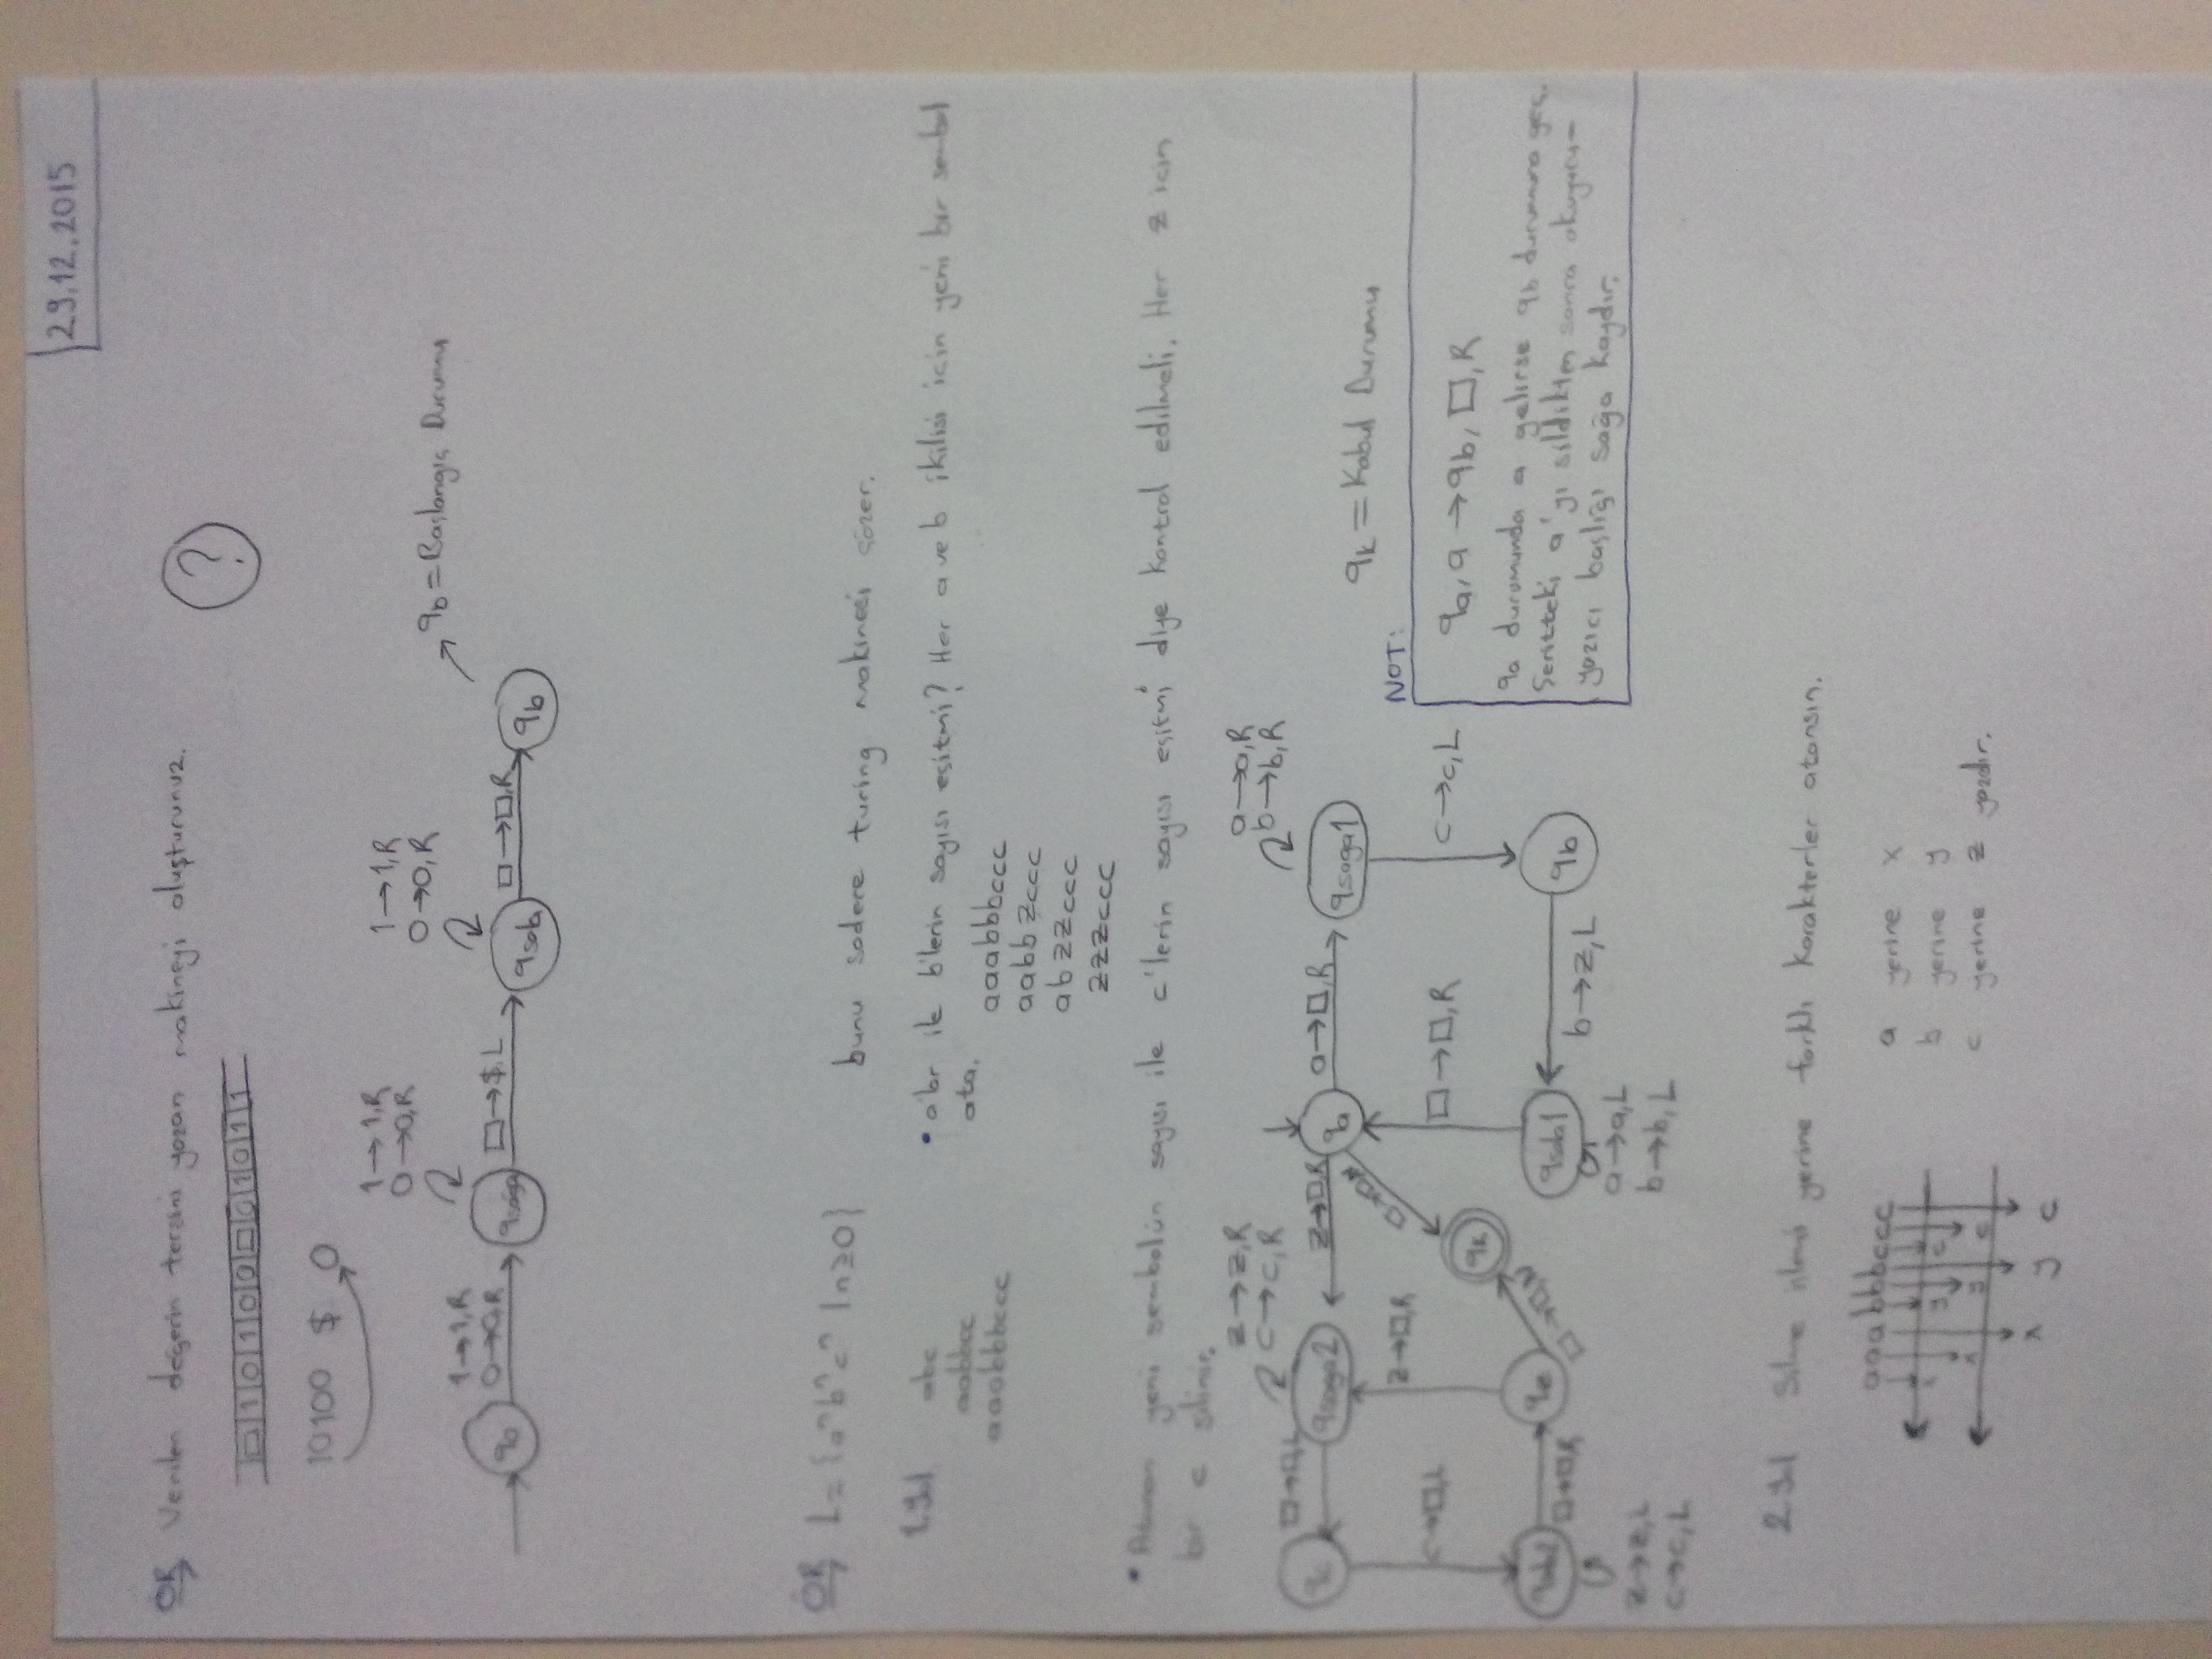 29.12.2015
ÖR Verilen değerin tersini yazan makineyi oluşturunuz.
?
□ 1 0 1 0 0 □ 0 1 0 1 1
10100 $ 0
1→1,R
0→0,R
1→1,R
0→0,R
qb = Başlangıç Durumu
1→1,R
0→0,R
q0
qsağa
□→$,L
qsola
□→□,R
qb
ÖR L={aⁿbⁿcⁿ |n≥0} bunu sadece turing makinesi çözer.
1.Yol
abc
aabbcc
aaabbbccc
• a'lar ile b'lerin sayısı eşitmi? Her a ve b ikilisi için yeni bir sembol
ata.
aaabbbccc
aabbzccc
abzzccc
zzzccc
• Atanan yeni sembolün sayısı ile c'lerin sayısı eşitmi diye kontrol edilmeli. Her z için
bir c silinir.
z→z,R
c→c,R
a→a,R
b→b,R
qc
□→□,L
qsağa2
z→□,R
qa
a→□,R
qsağa1
□→□,N
qk = Kabul Durumu
c→□,L
z→□,R
qk
□→□,R
c→c,L
qsola2
□→□,R
qe
□→□,N
qsola1
b→z,L
qb
z→z,L
c→c,L
a→a,L
b→b,L
NOT:
qa, a→qb, □, R
qa durumunda a gelirse qb durumuna geç.
Şeritteki a'yı sildikten sonra okuyucu-
yazıcı başlığı sağa kaydır.
2.Yol Silme işlemi yerine farklı karakterler atansın.
aaabbbccc
x y c
x y c
x y c
a yerine x
b yerine y
c yerine z yazdır.